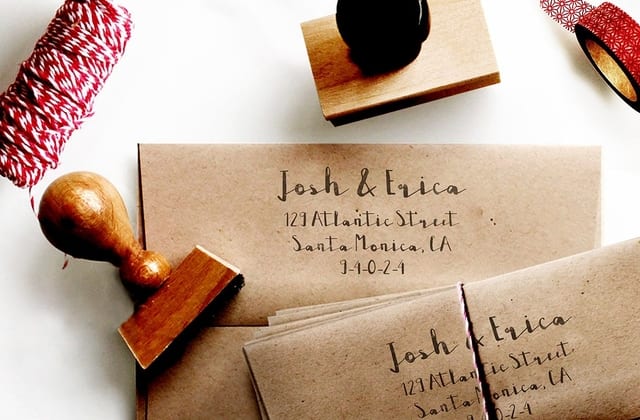 Josh & Erica
129 Atlantic Street
Santa Monica, CA
9-4-0-2-4
Josh & Erica
129 Atlantic Street
Santa Monica, CA
9-4-0-2-4